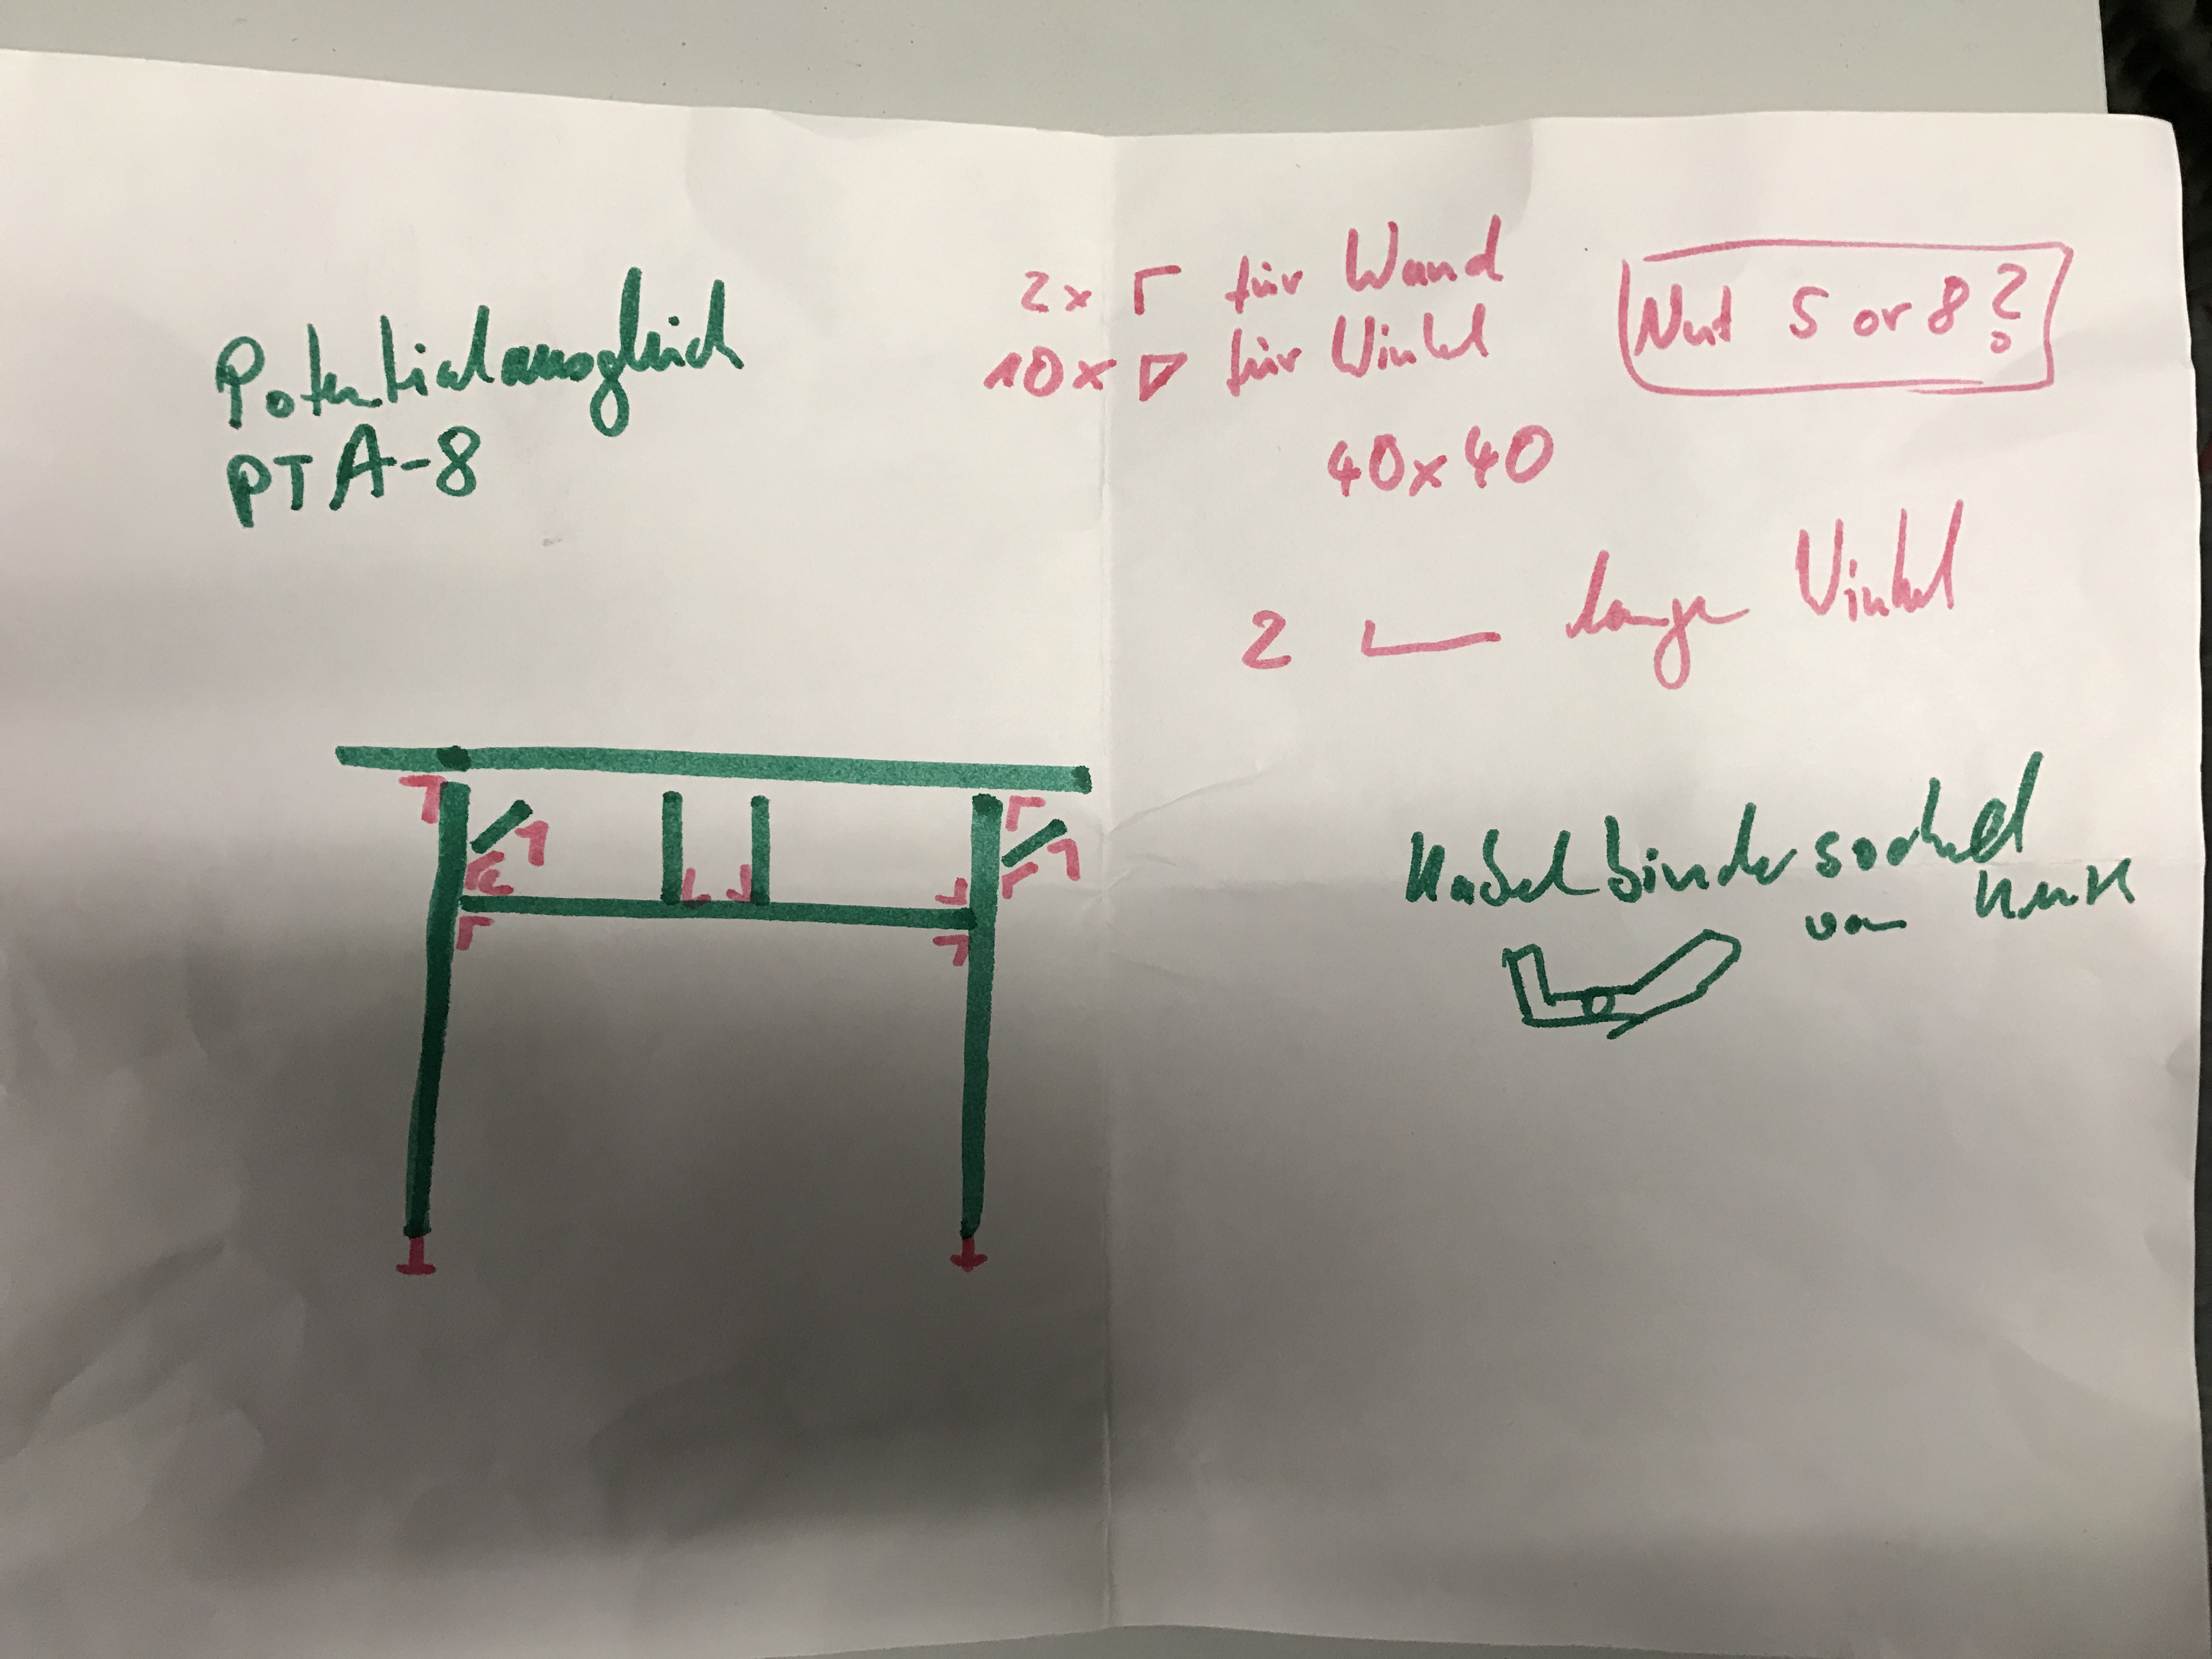 Potentialausgleich
PTA-8
2x für Wand
10x für Winkel
40x40
Nut 5 or 8?
2 lange Winkel
Kabelbindersockel
von